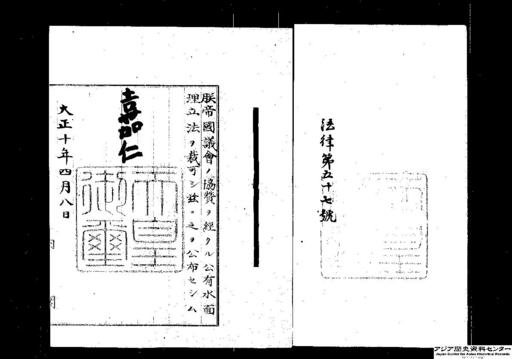 法律第五十七號
朕帝國議會ノ協贊ヲ經タル公有水面
埋立法ヲ裁可シ茲ニ之ヲ公布セシム
嘉仁
天皇御璽
大正十年四月八日
内閣
アジア歴史資料センター
Japan Center for Asian Historical Records